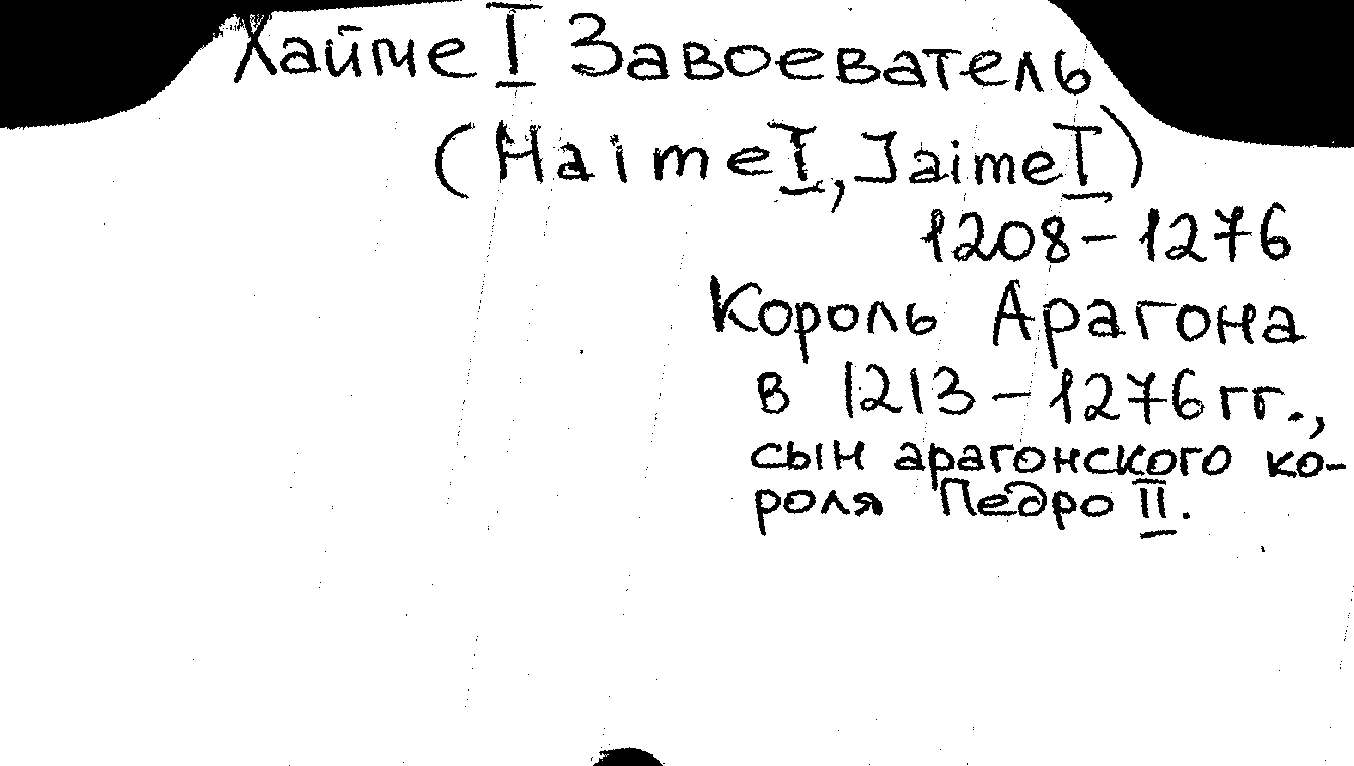 Хайме I Завоеватель
(Haime I, Jaime I)
1208-1276
Король Арагона
в 1213-1276 гг.,
сын арагонского ко-
роля Педро II.